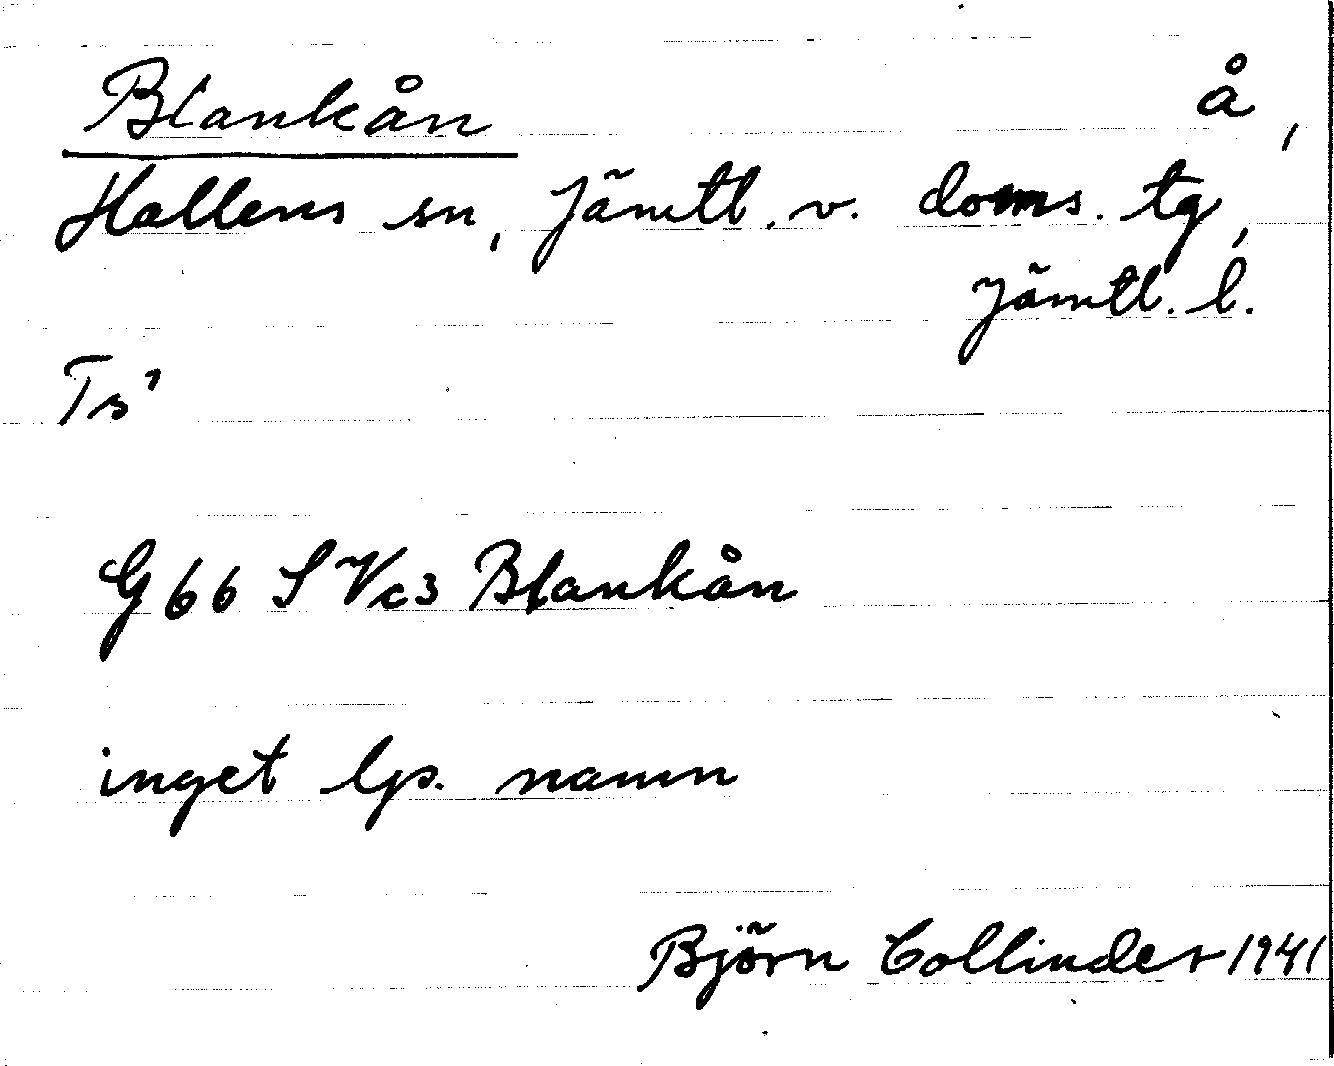 Blankån å,
Hallens sn, Jämtl. v. doms. tg,
Jämtl. l.
Ts'
G 66 S V c 3 Blankån
inget lp. namn
Björn Collinder 1941